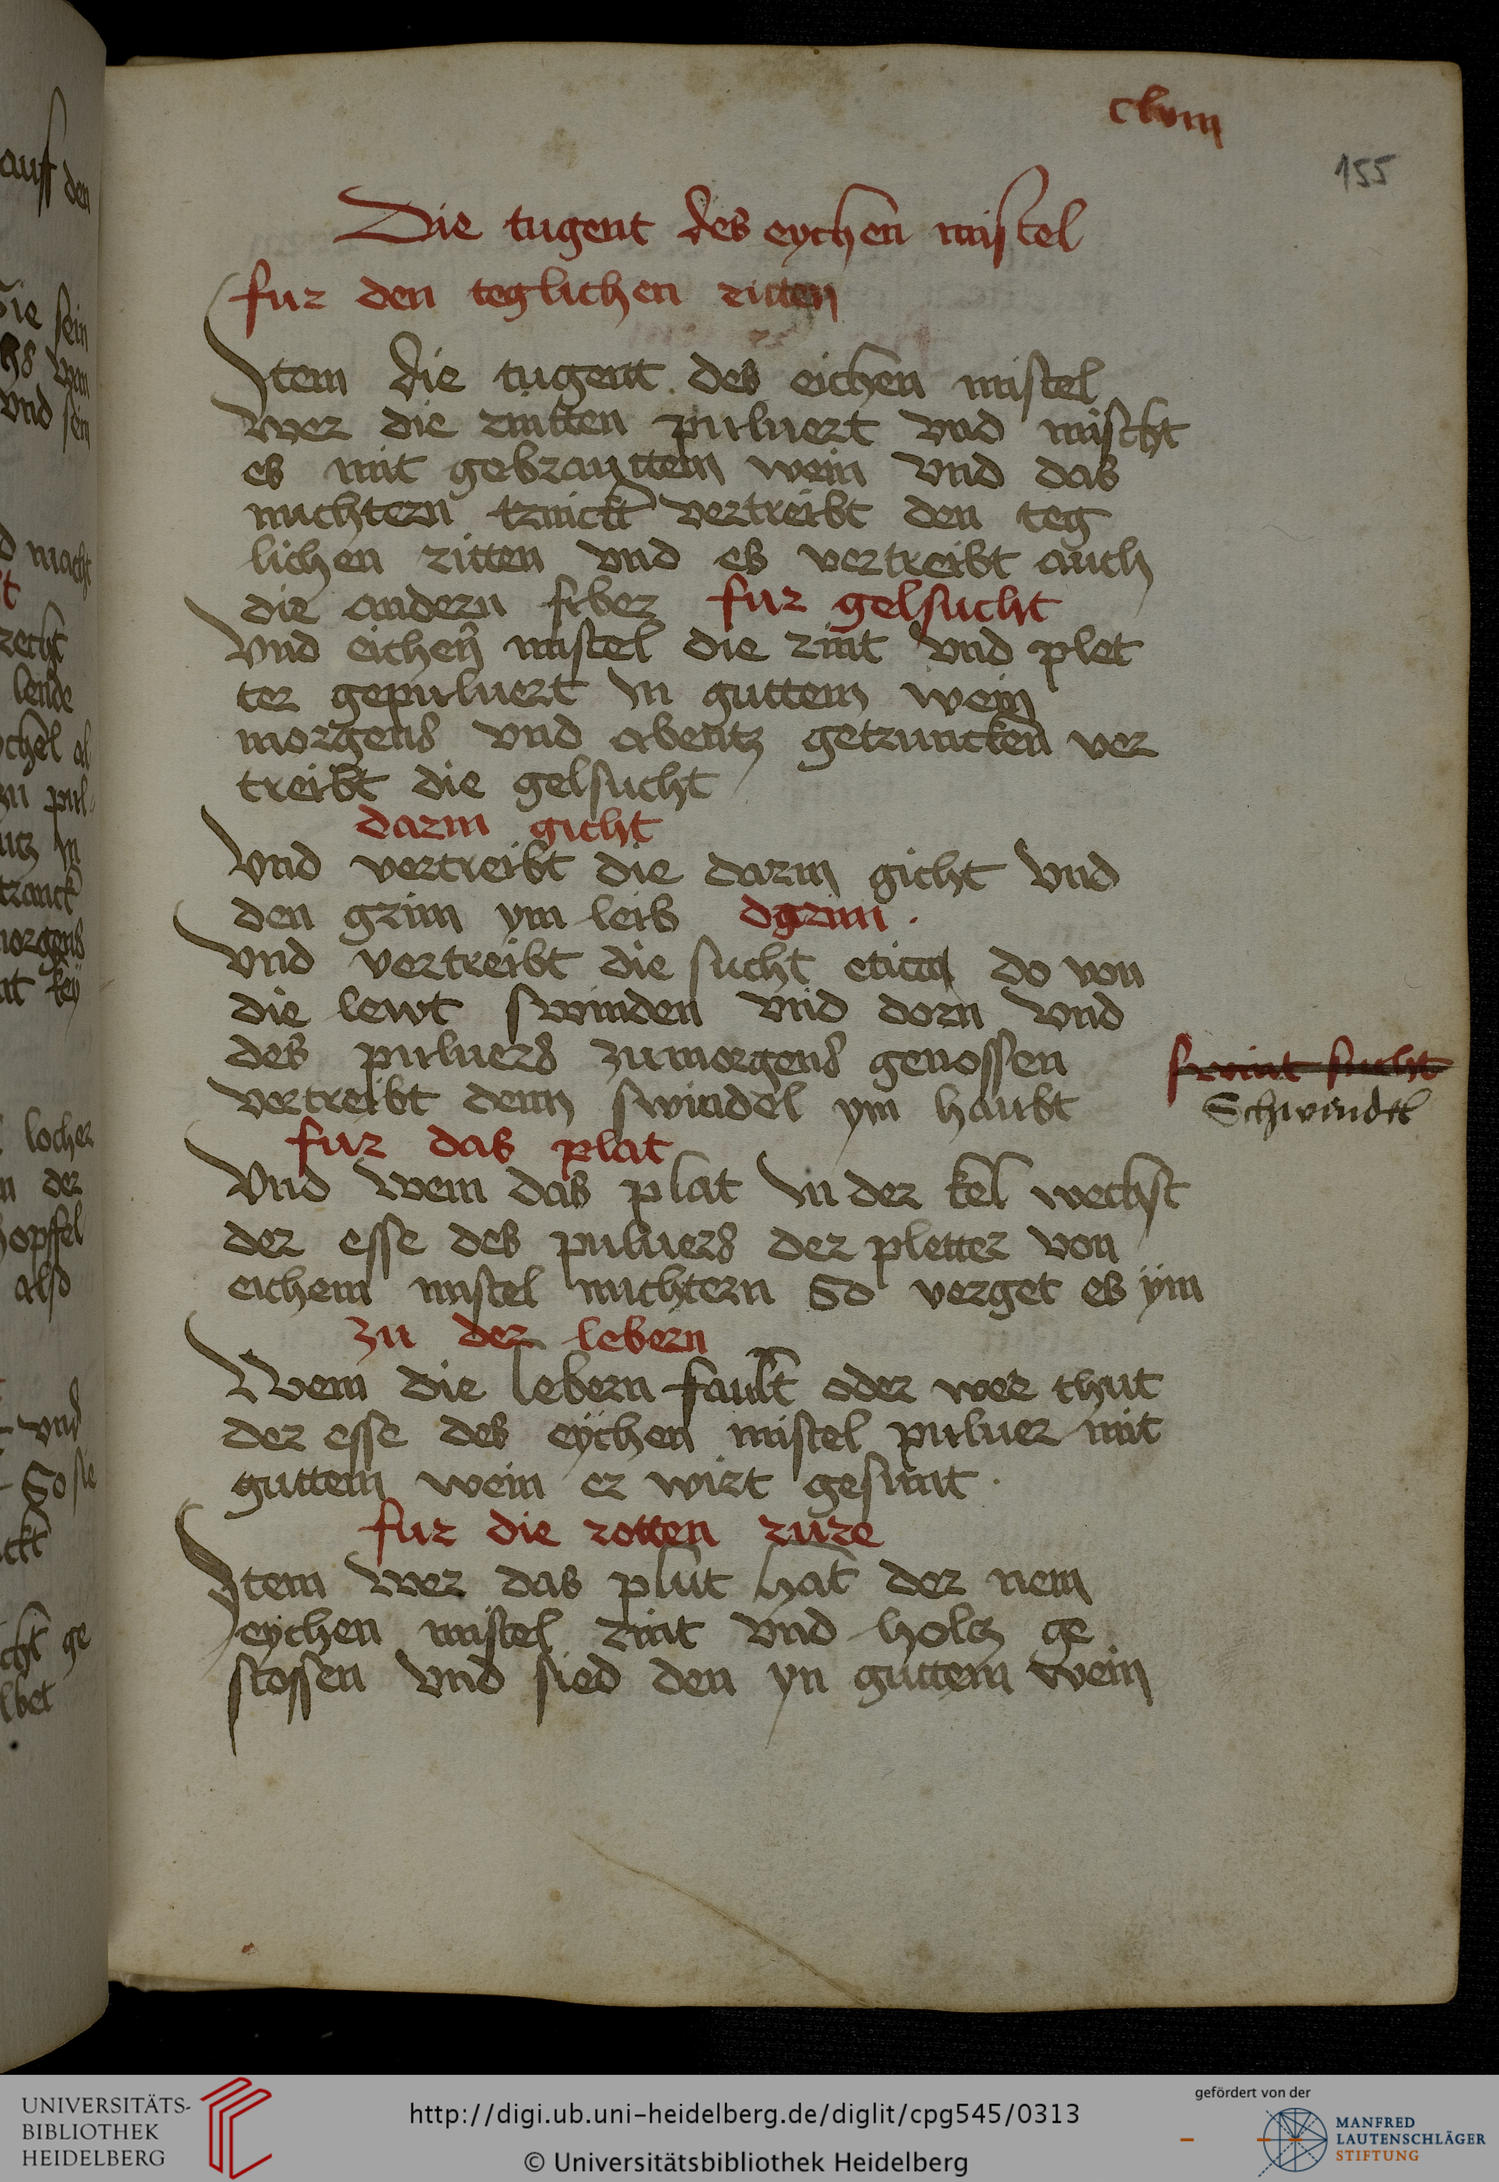 clvııı
155
Die tugent des eychen mistel
fur den teglichen ritten
Item die tugent des eichen mistel
wer die rintten puluert vnd mischt
es mit gebranttem wein vnd das
nuchtern trinckt vertreibt den teg
lichen ritten vnd es vertreibt auch
die andern fiber fur gelsucht
Vnd eichen mistel die rint vnd plet
ter gepuluert in guttem wein
morgens vnd abentz getruncken ver
treibt die gelsucht
darm gicht
Vnd vertreibt die darm gicht vnd
den grim ym leib d grim
Vnd vertreibt die sucht etica do von
die lewt swinden vnd dorn vnd
des puluers zu morgens genossen
swint sucht
vertreibt denn swindel ym haubt
Schwindel
fur das plat
Vnd wem das plat in der kel wechst
der esse des puluers der pletter von
eichem mistel nuchtern So verget es ym
zu der lebern
Wem die lebern fault oder wee thut
der esse des eychen mistel puluer mit
guttem wein er wirt gesunt
fur die rotten rure
Item wer das plut hat der nem
eychen mistel rint vnd holtz ge
stossen vnd sied den yn guttem wein
auff den
Sie sein
vnd sein
macht
recht
lende
zu pul
tranck
morgens
locher
der
opffel
also
vnd
So sie
ge
UNIVERSITÄTS-
BIBLIOTHEK
HEIDELBERG
http://digi.ub.uni-heidelberg.de/diglit/cpg545/0313
© Universitätsbibliothek Heidelberg
gefördert von der
MANFRED
LAUTENSCHLÄGER
STIFTUNG